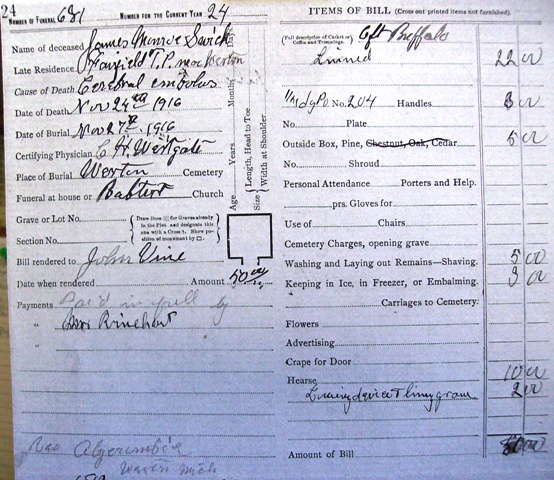 24
NUMBER OF FUNERAL 681 NUMBER FOR THE CURRENT YEAR 24
Name of deceased James Monroe
Late Residence Fairfield T.P. near Weston
Cause of Death Cerebral embolus
Date of Death Nov 24th 1916
Date of Burial Nov 27th 1916
Certifying Physician C H Westgate
Place of Burial Weston Cemetery
Funeral at house or Baptist Church
Grave or Lot No.
Section No.
Draw lines for Graves already in the Plot and designate this one with a Cross †. Show position of monument by □.
Bill rendered to John Vine
Date when rendered Amount 50 00
Payments Paid in full by
" Mrs Rinehart
"
Age Years Months Days
Length, Head to Toe
Size Width at Shoulder
Warren Mich
ITEMS OF BILL (Cross out printed items not furnished).
(Full description of Casket or Coffin and Trimmings. 6ft Buffalo
Lined 22 00
No. 204 Handles 3 00
No. Plate
Outside Box, Pine, Chestnut, Oak, Cedar 5 00
No. Shroud
Personal Attendance Porters and Help.
prs. Gloves for
Use of Chairs
Cemetery Charges, opening grave
Washing and Laying out Remains—Shaving. 5 00
Keeping in Ice, in Freezer, or Embalming. 3 00
Carriages to Cemetery.
Flowers
Advertising
Crape for Door
Hearse 10 00
Lowering device & lining grave 2 00
Amount of Bill 50 00